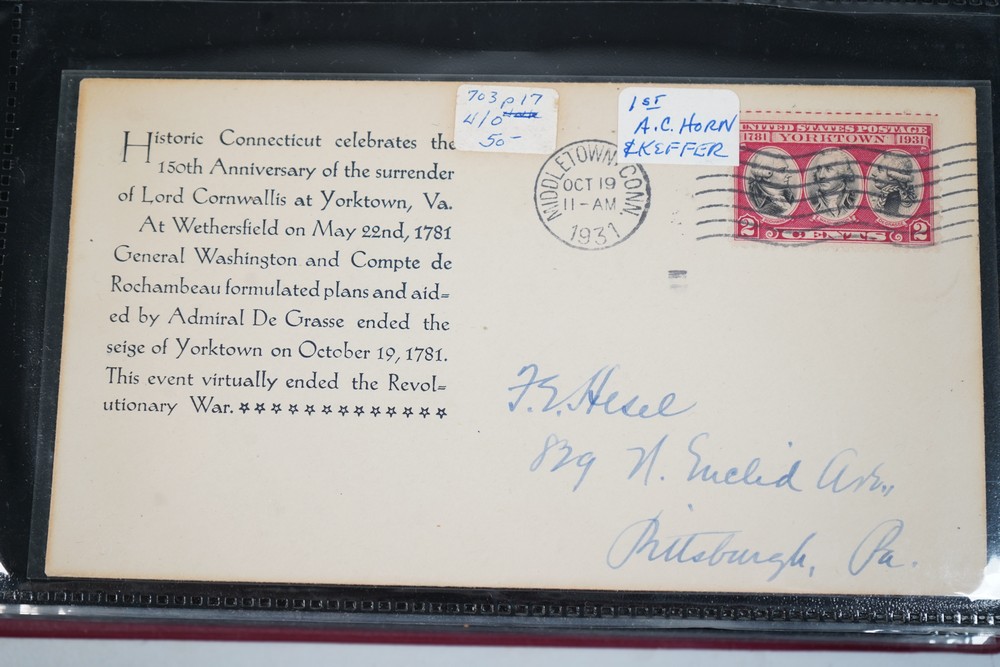 Historic Connecticut celebrates the
150th Anniversary of the surrender
of Lord Cornwallis at Yorktown, Va.
At Wethersfield on May 22nd, 1781
General Washington and Compte de
Rochambeau formulated plans and aid=
ed by Admiral De Grasse ended the
seige of Yorktown on October 19, 1781.
This event virtually ended the Revol=
utionary War. ☆☆☆☆☆☆☆☆☆☆☆☆☆
703 p 17
4/0
50-
1ST
A.C. HORN
& KEFFER
MIDDLETOWN, CONN.
OCT 19
11-AM
1931
UNITED STATES POSTAGE
1781 YORKTOWN 1931
2 CENTS 2
F.E. Hesel
839 N. Euclid Ave.,
Pittsburgh, Pa.